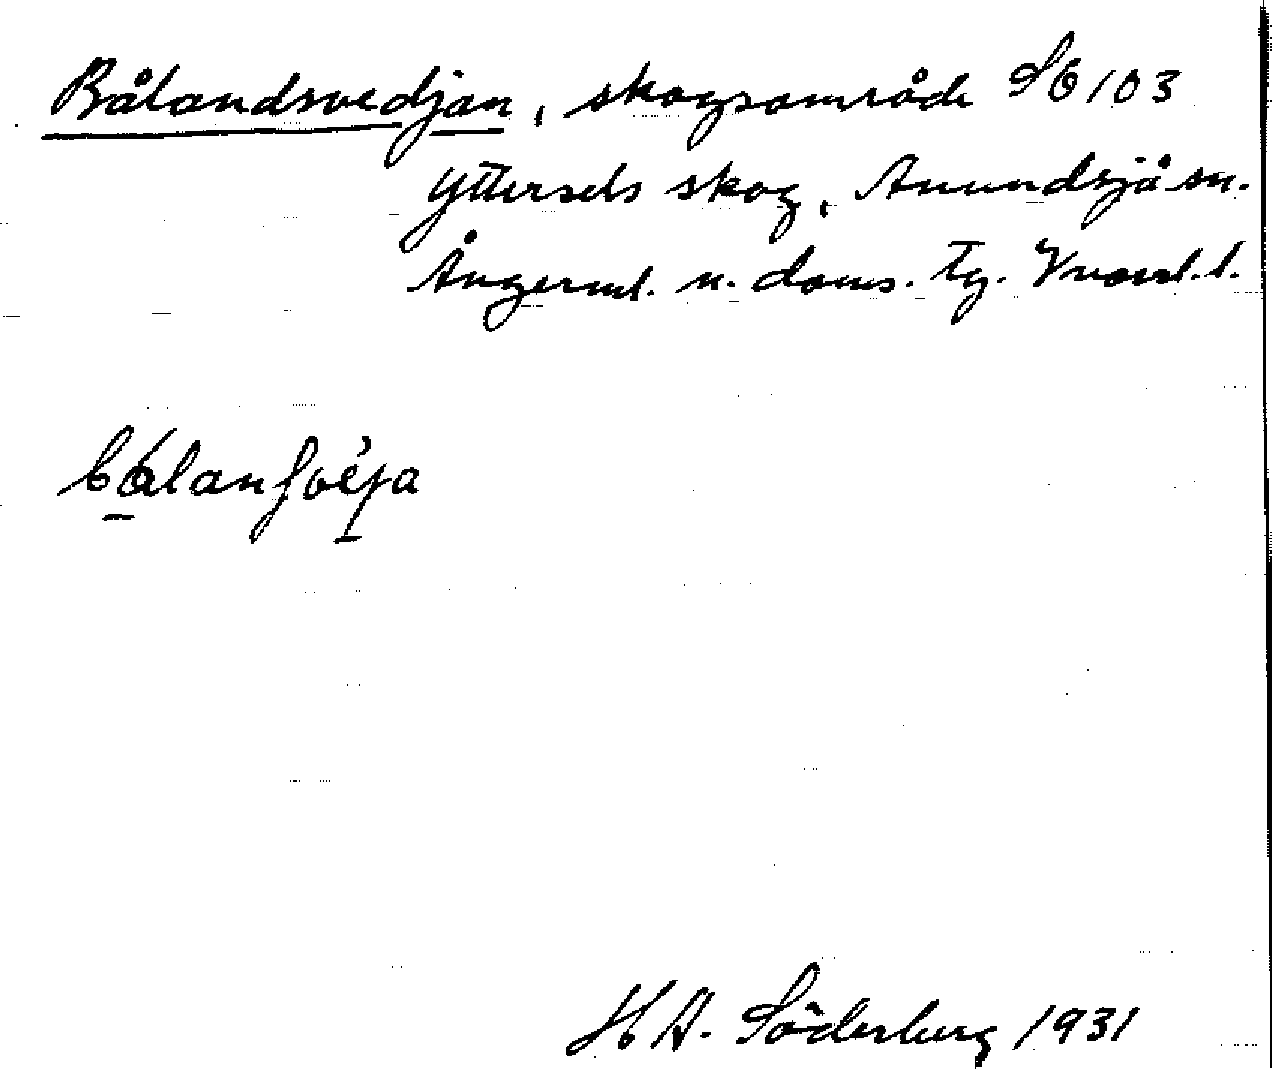 Bålandsvedjan, skogsområde SÖ 103
Yttersels skog, Anundsjö sn.
Ångerml. n. doms. tg. Vnorrl. l.
H A. Söderberg 1931